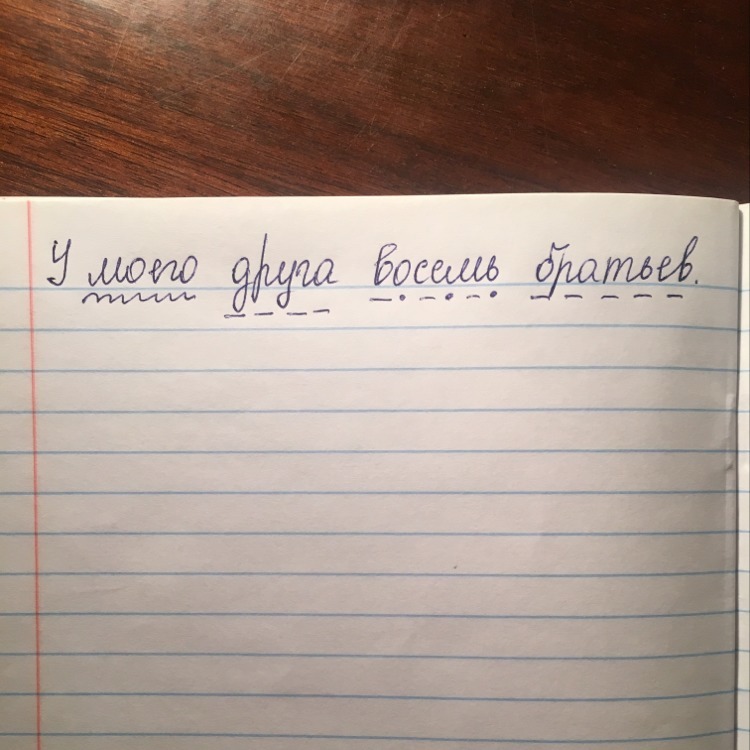 У моего друга восемь братьев.